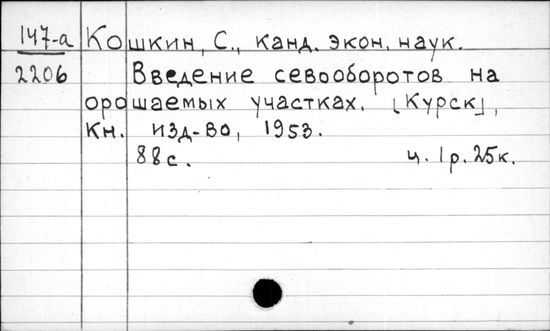 147-а Кошкин, С., канд. экон. наук.
2206 Введение севооборотов на
орошаемых участках. [Курск],
Кн. изд-во, 1953.
88с. ц. 1р. 25к.